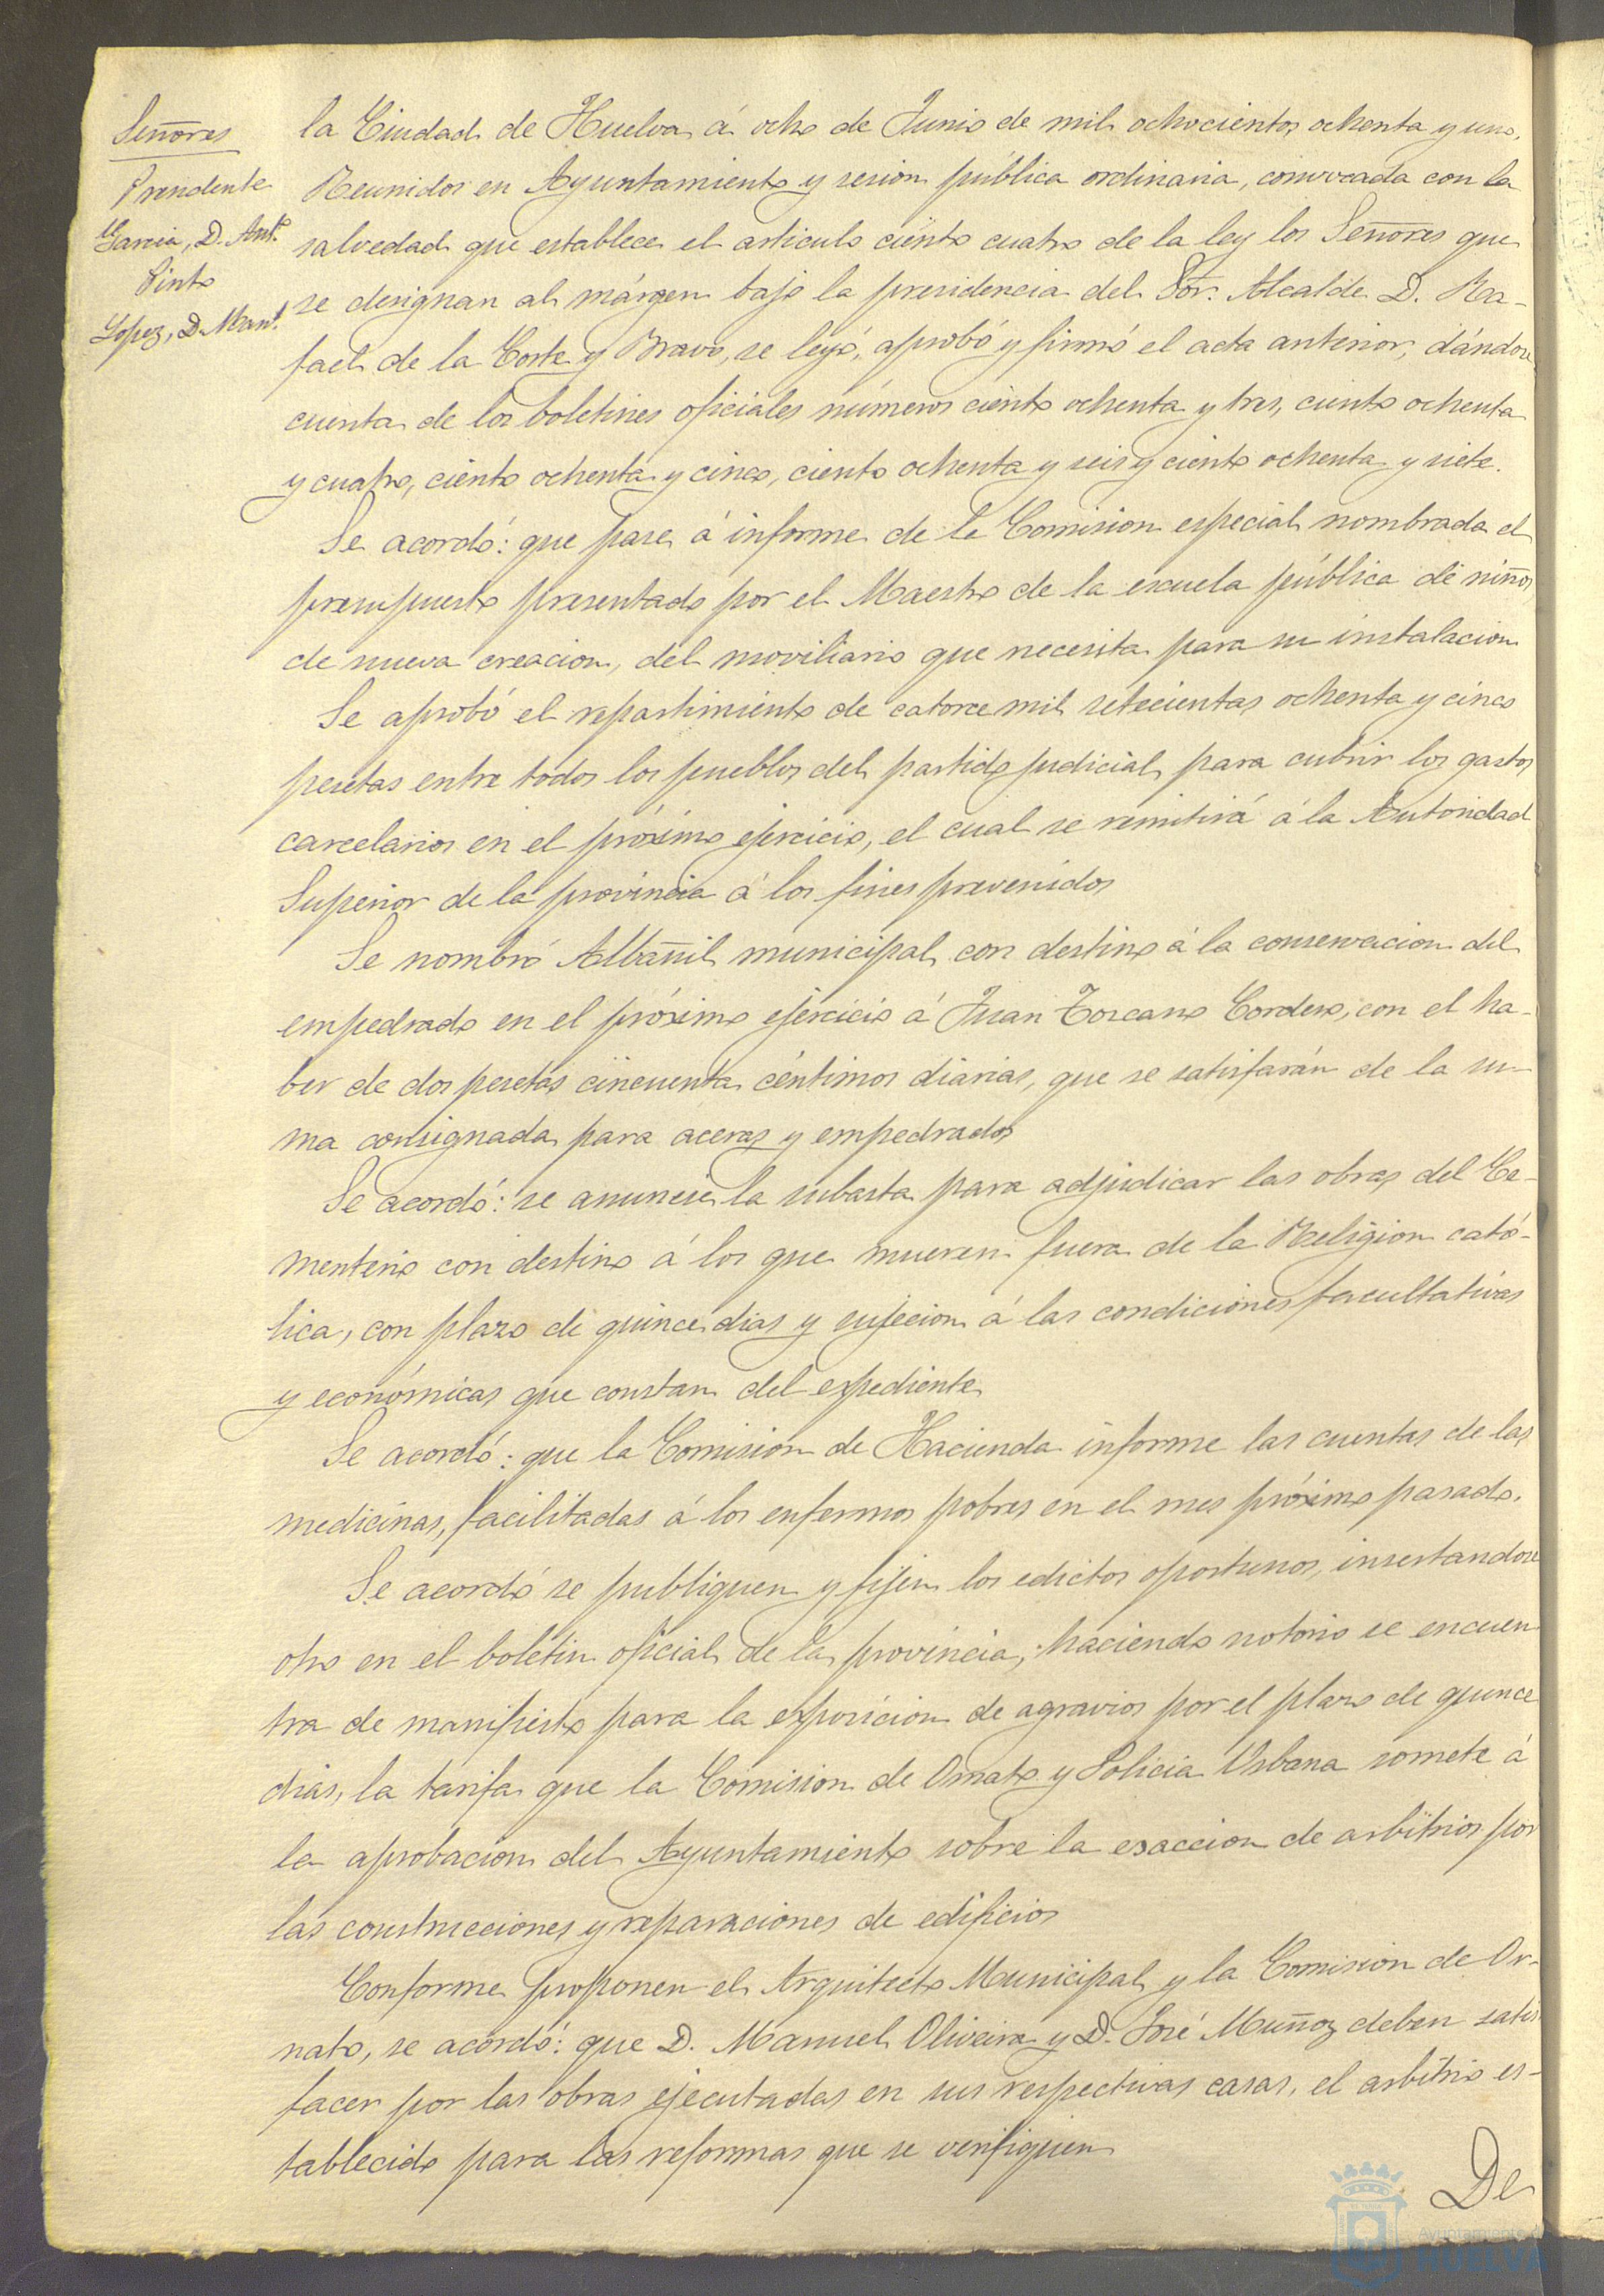 Señores
Presidente
Garcia, D. Antº
Pinto
Lopez, D. Manl.
la Ciudad de Huelva á ocho de Junio de mil ochocientos ochenta y uno.
Reunidos en Ayuntamiento y sesion pública ordinaria, convocada con la
salvedad que establece el articulo ciento cuatro de la ley los Señores que
se designan al márgen bajo la presidencia del Sor. Alcalde D. Ra-
fael de la Corte y Bravo, se leyó, aprobó y firmó el acta anterior, dándose
cuenta de los boletines oficiales números ciento ochenta y tres, ciento ochenta
y cuatro, ciento ochenta y cinco, ciento ochenta y seis y ciento ochenta y siete.
Se acordó: que pase á informe de la Comision especial nombrada el
presupuesto presentado por el Maestro de la escuela pública de niños
de nueva creacion, del moviliario que necesita para su instalacion
Se aprobó el repartimiento de catorce mil setecientas ochenta y cinco
pesetas entre todos los pueblos del partido judicial, para cubrir los gastos
carcelarios en el próximo ejercicio, el cual se remitirá á la Autoridad
Superior de la provincia á los fines prevenidos
Se nombró Albañil municipal, con destino á la conservacion del
empedrado en el próximo ejercicio á Juan Toscano Cordero, con el ha-
ber de dos pesetas cincuenta céntimos diarias, que se satisfarán de la su-
ma consignada para aceras y empedrados
Se acordó: se anuncie la subasta para adjudicar las obras del Ce-
menterio con destino á los que mueren fuera de la Religion cató-
lica, con plazo de quince dias y sujecion á las condiciones facultativas
y económicas que constan del expediente
Se acordó: que la Comision de Hacienda informe las cuentas de las
medicinas, facilitadas á los enfermos pobres en el mes próximo pasado.
Se acordó se publiquen y fijen los edictos oportunos, insertandose
otro en el boletin oficial de la provincia, haciendo notorio se encuen
tra de manifiesto para la exposicion de agravios por el plazo de quince
dias, la tarifa que la Comision de Ornato y Policia Urbana somete á
la aprobacion del Ayuntamiento sobre la exaccion de arbitrios por
las construcciones y reparaciones de edificios
Conforme proponen el Arquitecto Municipal y la Comision de Or-
nato, se acordó: que D. Manuel Oliveira y D. José Muñoz deben satis
facer por las obras ejecutadas en sus respectivas casas, el arbitrio es-
tablecido para las reformas que se verifiquen
De
Ayuntamiento
HUELVA